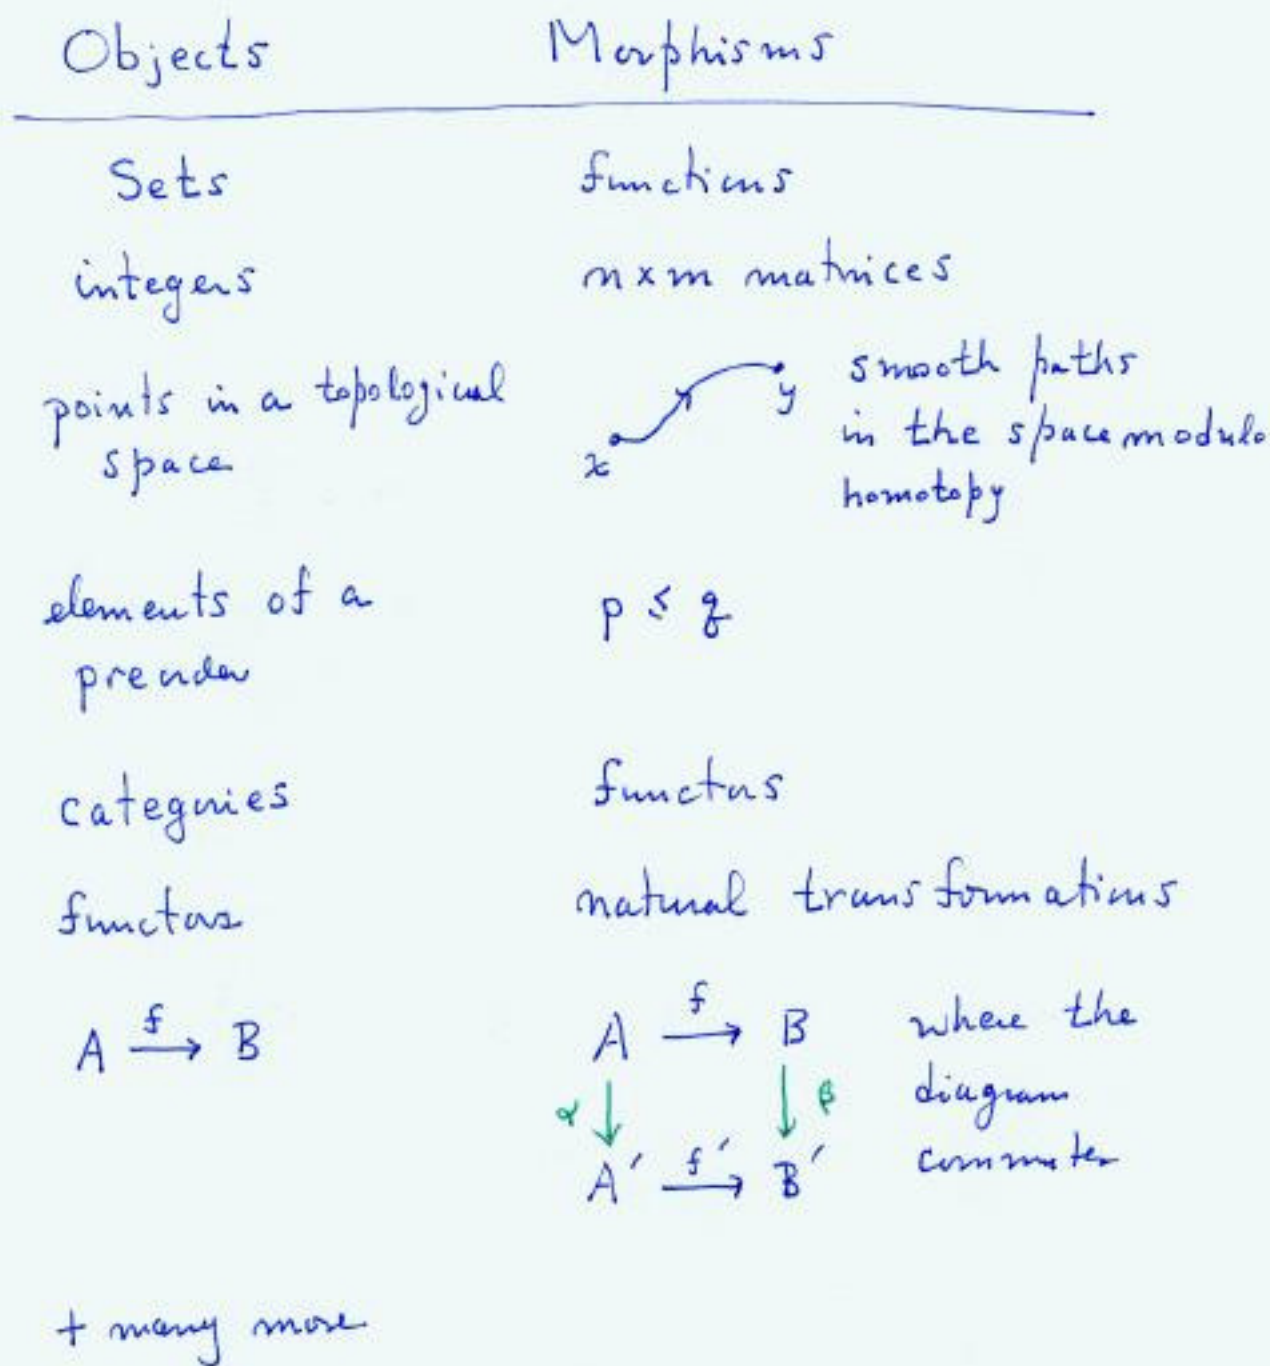 Objects Morphisms
Sets functions
integers n×m matrices
points in a topological space
x y
smooth paths
in the space modulo
homotopy
elements of a
preorder
p ≤ q
categories functors
functors natural transformations
A f→ B
A f→ B
α ↓ ↓ β
A' f'→ B'
where the
diagram
commutes
+ many more